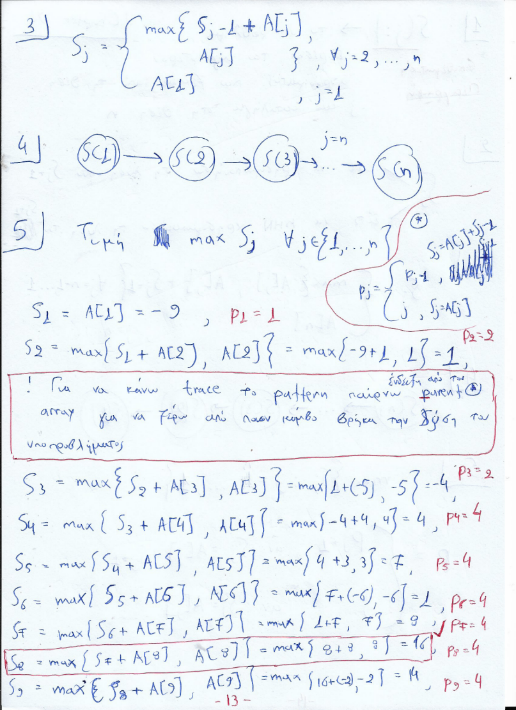 3] Sj = { max{ Sj-1 + A[j],
A[j] } , ∀j=2, ..., n
A[1] , j=1
4] S(1) → S(2) → S(3) → ... j=n → S(n)
5] Τιμή max Sj ∀ j∈{1,...,n}
(*) Pj = { Pj-1, Sj=A[j]+Sj-1
j , Sj=A[j]
S1 = A[1] = -9 , P1 = 1
S2 = max{ S1 + A[2], A[2] } = max{-9+1, 1} = 1, P2=2
! Για να κάνω trace το pattern παίρνω ένδειξη από τον parent (*)
array για να ξέρω από ποιον κόμβο βρήκα την λύση του
υποπροβλήματος
S3 = max{ S2 + A[3] , A[3] } = max{1+(-5), -5} = -4, P3=2
S4 = max{ S3 + A[4], A[4] } = max{-4+4, 4} = 4, P4=4
S5 = max{ S4 + A[5] , A[5] } = max{4+3, 3} = 7, P5=4
S6 = max{ S5 + A[6] , A[6] } = max{7+(-6), -6} = 1, P6=4
S7 = max{ S6 + A[7] , A[7] } = max{1+7, 7} = 8, P7=4
S8 = max{ S7 + A[8] , A[8] } = max{ 8+8, 8 } = 16, P8=4
S9 = max{ S8 + A[9] , A[9] } = max{16+(-2), -2} = 14, P9=4
- 13 -